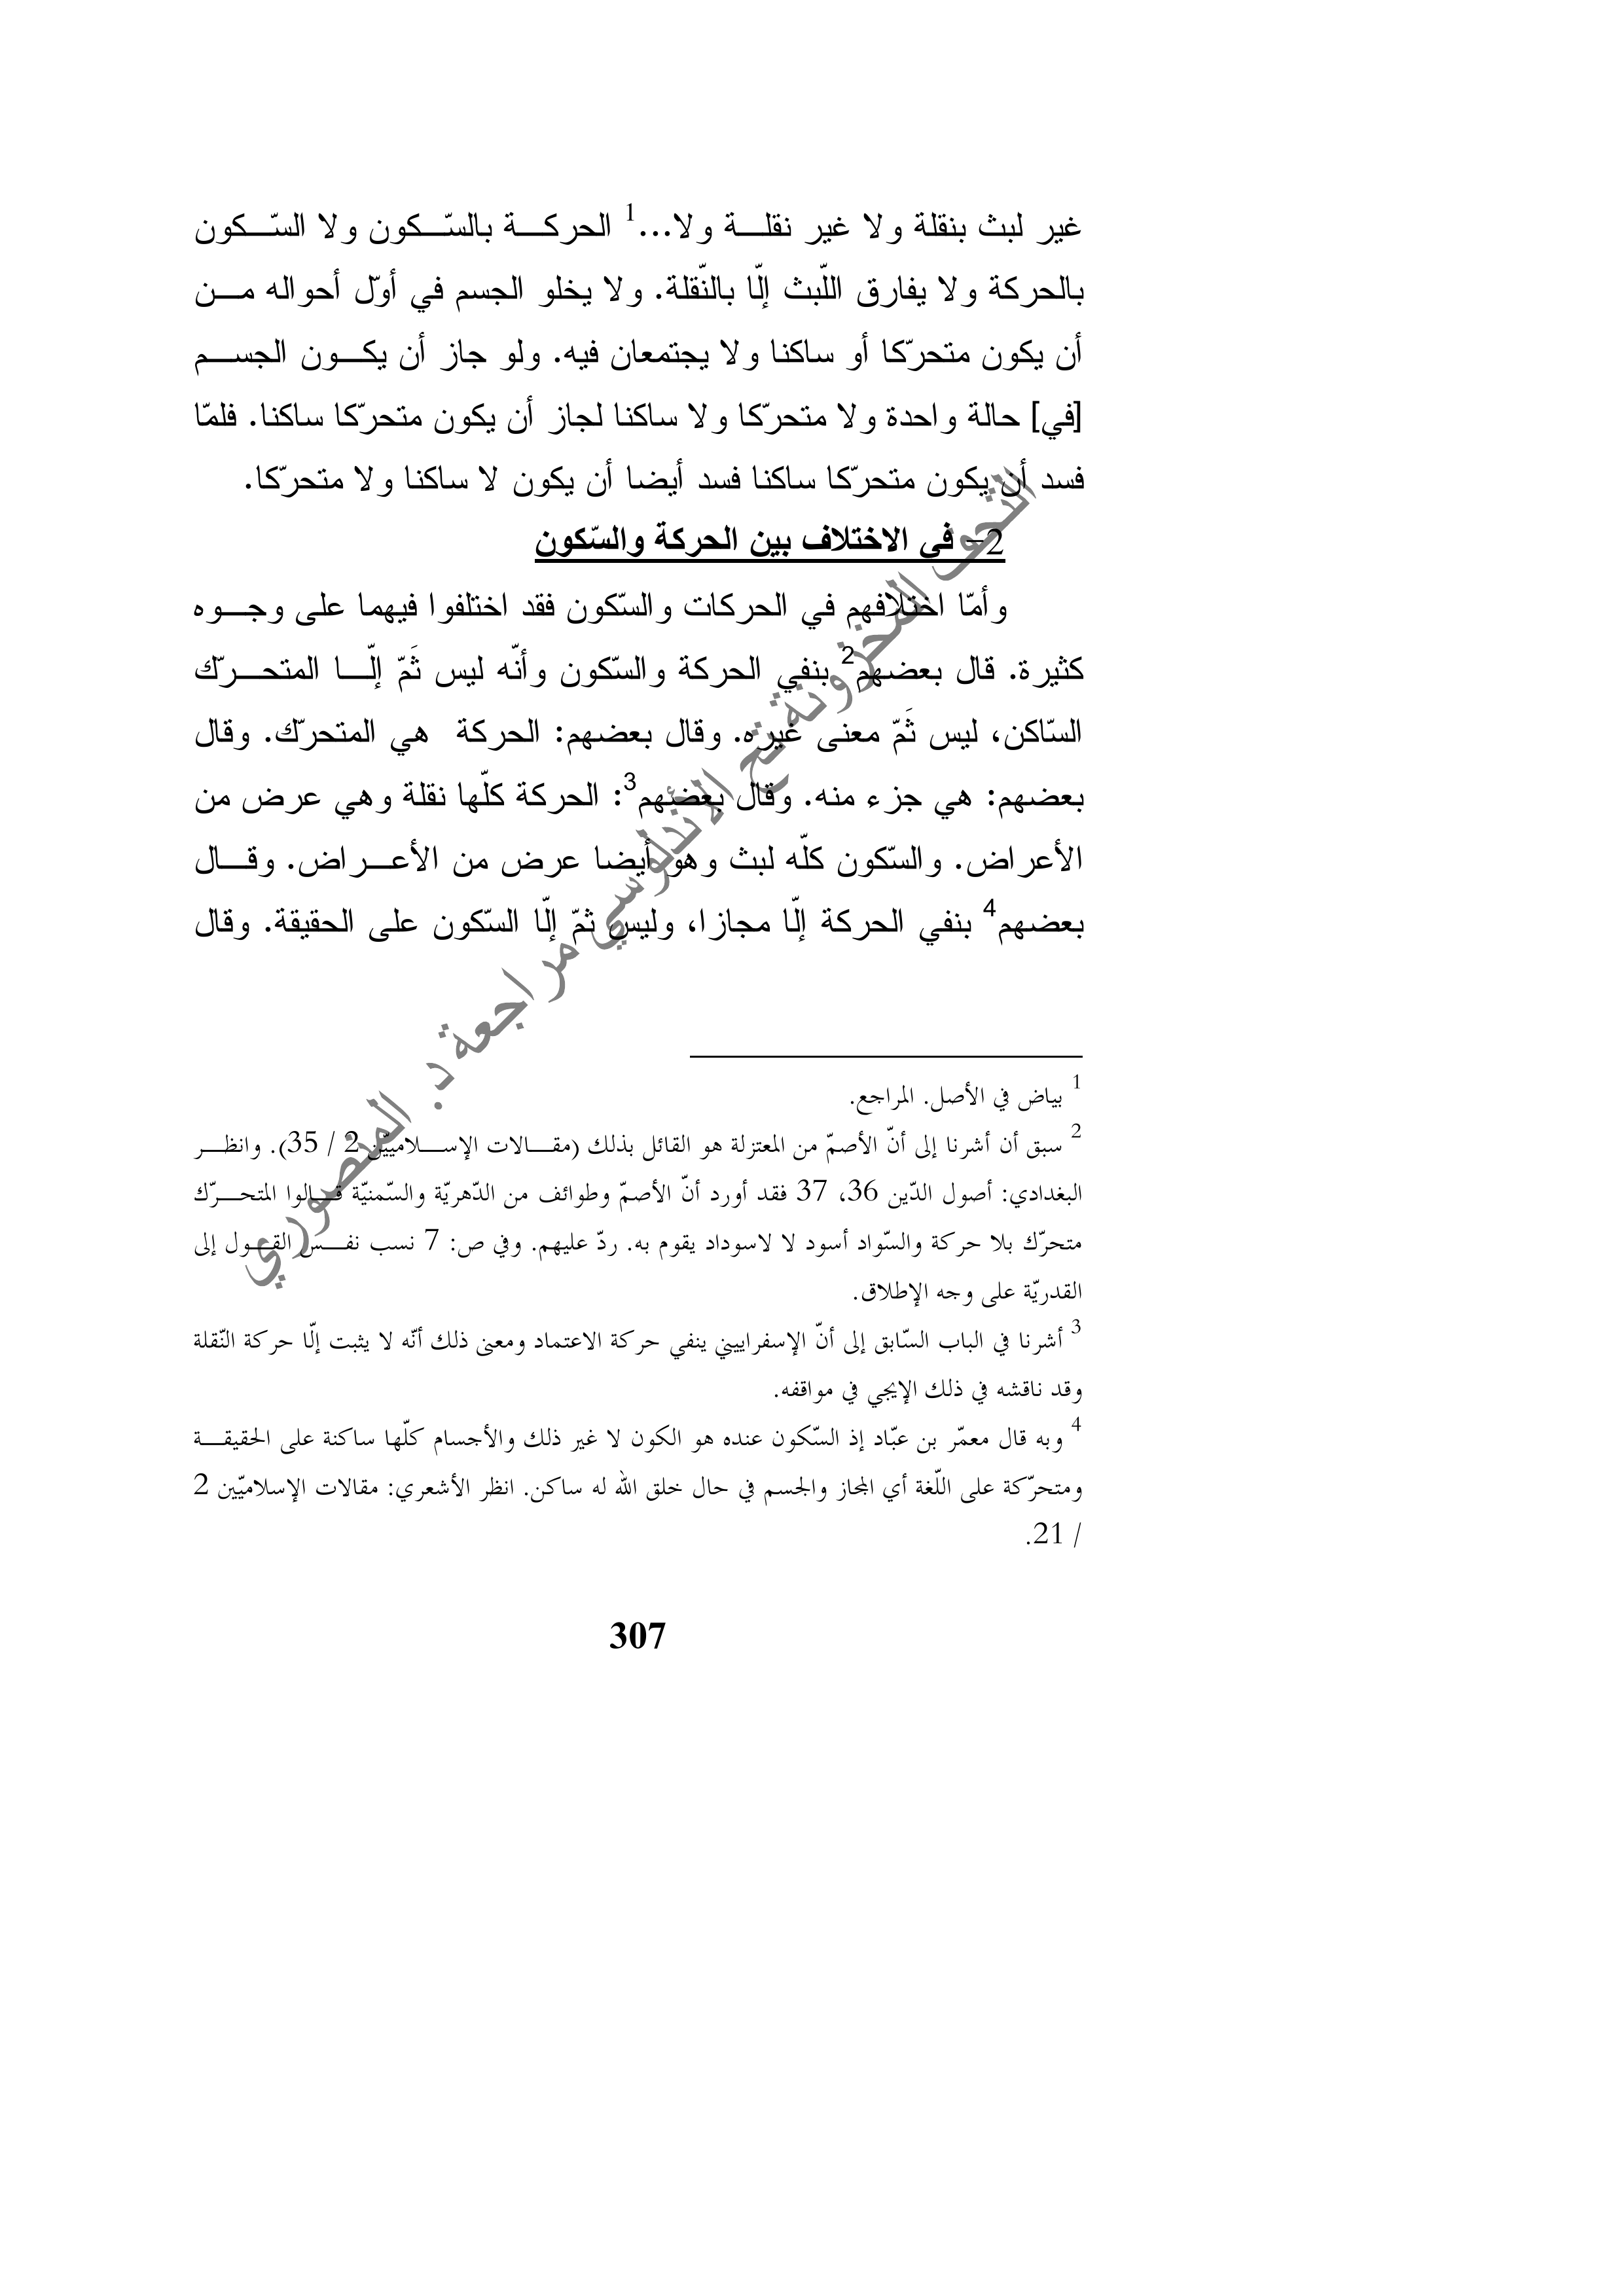 غير لبث بنقلة ولا غير نقلة ولا...1 الحركة بالسّكون ولا السّكون
بالحركة ولا يفارق اللّبث إلّا بالنّقلة. ولا يخلو الجسم في أوّل أحواله من
أن يكون متحرّكا أو ساكنا ولا يجتمعان فيه. ولو جاز أن يكون الجسم
[في] حالة واحدة ولا متحرّكا ولا ساكنا لجاز أن يكون متحرّكا ساكنا. فلمّا
فسد أن يكون متحرّكا ساكنا فسد أيضا أن يكون لا ساكنا ولا متحرّكا.
2- في الاختلاف بين الحركة والسّكون
وأمّا اختلافهم في الحركات والسّكون فقد اختلفوا فيهما على وجوه
كثيرة. قال بعضهم2 بنفي الحركة والسّكون وأنّه ليس ثَمّ إلّا المتحرّك
السّاكن، ليس ثَمّ معنى غيره. وقال بعضهم: الحركة هي المتحرّك. وقال
بعضهم: هي جزء منه. وقال بعضهم3: الحركة كلّها نقلة وهي عرض من
الأعراض. والسّكون كلّه لبث وهو أيضا عرض من الأعراض. وقال
بعضهم4 بنفي الحركة إلّا مجازا، وليس ثمّ إلّا السّكون على الحقيقة. وقال
1 بياض في الأصل. المراجع.
2 سبق أن أشرنا إلى أنّ الأصمّ من المعتزلة هو القائل بذلك (مقالات الإسلاميّين 2 / 35). وانظر
البغدادي: أصول الدّين 36، 37 فقد أورد أنّ الأصمّ وطوائف من الدّهريّة والسّمنيّة قالوا المتحرّك
متحرّك بلا حركة والسّواد أسود لا لاسوداد يقوم به. ردّ عليهم. وفي ص: 7 نسب نفس القول إلى
القدريّة على وجه الإطلاق.
3 أشرنا في الباب السّابق إلى أنّ الإسفراييني ينفي حركة الاعتماد ومعنى ذلك أنّه لا يثبت إلّا حركة النّقلة
وقد ناقشه في ذلك الإيجي في مواقفه.
4 وبه قال معمّر بن عبّاد إذ السّكون عنده هو الكون لا غير ذلك والأجسام كلّها ساكنة على الحقيقة
ومتحرّكة على اللّغة أي المجاز والجسم في حال خلق الله له ساكن. انظر الأشعري: مقالات الإسلاميّين 2
/ 21.
307
التحف المخزونة تح الأندلوسي مراجعة د. المنصوري